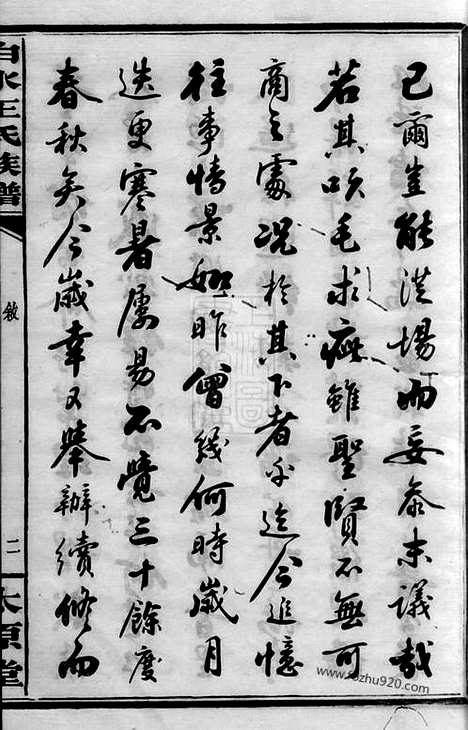 已爾豈能浃場而妄參末議哉
若其吹毛求疵雖聖賢不無可
商之處況於其下者乎迄今追憶
往事情景如昨曾幾何時歲月
迭更寒暑屢易不覺三十餘度
春秋矣今歲幸又舉辦續修而
白水王氏族譜
敘
二
太原堂
www.fozhu920.com